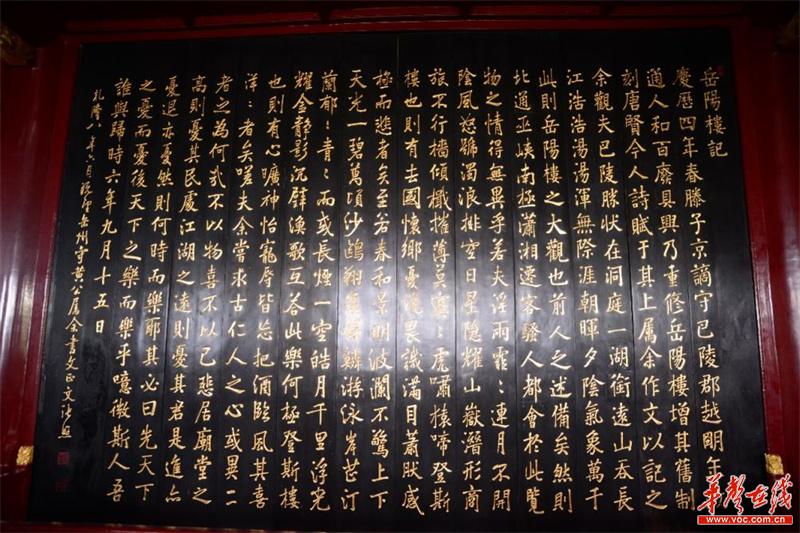 岳陽樓記
慶歷四年春滕子京謫守巴陵郡越明年政
通人和百廢具興乃重修岳陽樓增其舊制
刻唐賢今人詩賦于其上屬余作文以記之
余觀夫巴陵勝狀在洞庭一湖銜遠山吞長
江浩浩湯湯渾無際涯朝暉夕陰氣象萬千
此則岳陽樓之大觀也前人之述備矣然則
北通巫峽南極瀟湘遷客騷人都會於此覽
物之情得無異乎若夫淫雨霏〻連月不開
陰風怒號濁浪排空日星隱耀山嶽潛形商
旅不行檣傾檝摧薄莫冥〻虎嘯猿啼登斯
樓也則有去國懷鄉憂讒畏譏滿目蕭然感
極而悲者矣至若春和景明波瀾不驚上下
天光一碧萬頃沙鷗翔集錦鱗游泳岸芷汀
蘭郁〻青〻而或長煙一空皓月千里浮光
耀金靜影沉璧漁歌互答此樂何極登斯樓
也則有心曠神怡寵辱皆忘把酒臨風其喜
洋〻者矣嗟夫余嘗求古仁人之心或異二
者之為何哉不以物喜不以己悲居廟堂之
高則憂其民處江湖之遠則憂其君是進亦
憂退亦憂然則何時而樂耶其必曰先天下
之憂而憂後天下之樂而樂乎噫微斯人吾
誰與歸時六年九月十五日
乾隆八年六月既望岳州守黃公屬余書文正文張照
華聲在线
www.voc.com.cn